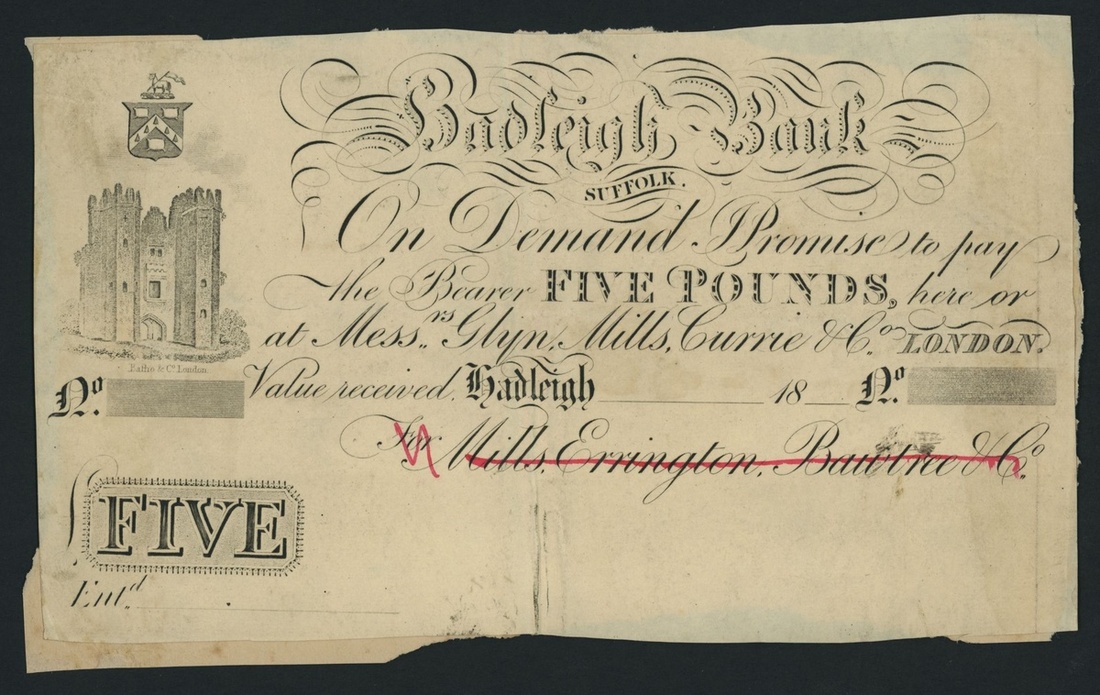 Hadleigh Bank
SUFFOLK.
On Demand I Promise to pay
the Bearer FIVE POUNDS, here or
at Mess.rs Glyn, Mills, Currie & Co. LONDON.
No. Value received. Hadleigh 18 No.
For Mills, Errington, Bawtree & Co.
FIVE
Entd.
& Co. London